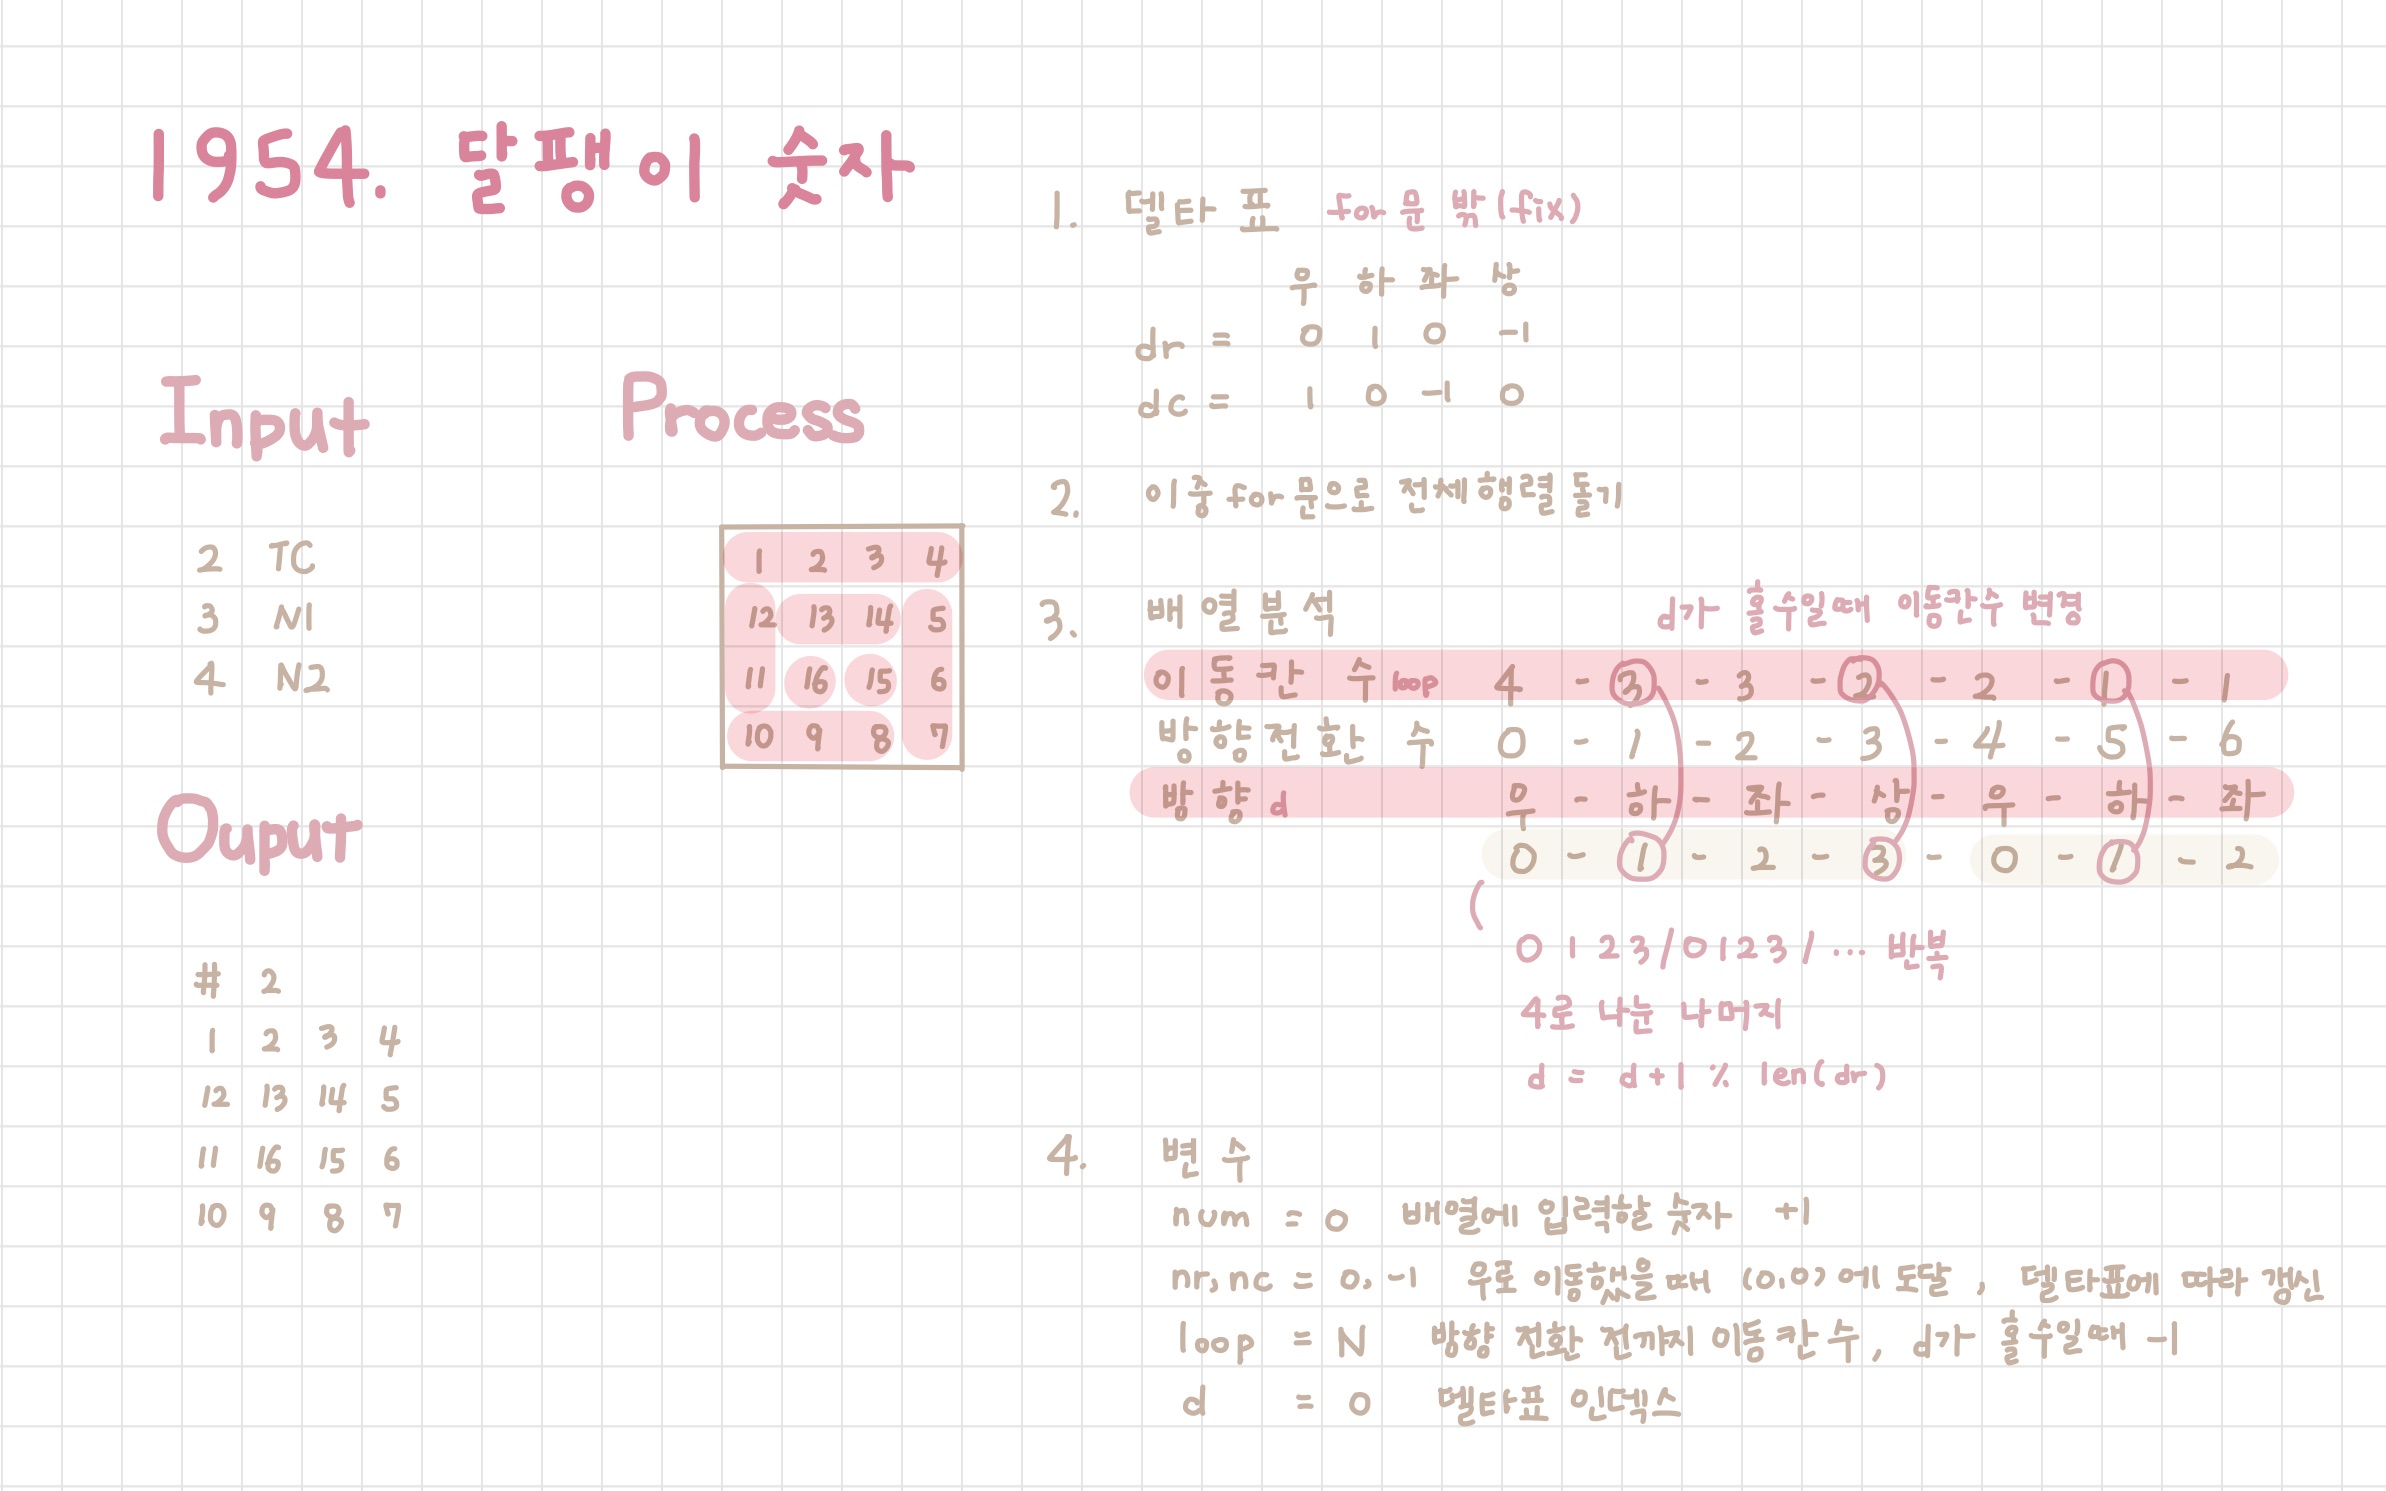 1954. 달팽이 숫자
Input
2 TC
3 N1
4 N2
Ouput
# 2
1 2 3 4
12 13 14 5
11 16 15 6
10 9 8 7
Process
1 2 3 4
12 13 14 5
11 16 15 6
10 9 8 7
1. 델타 표 for문 밖(fix)
우 하 좌 상
dr = 0 1 0 -1
dc = 1 0 -1 0
2. 이중for문으로 전체행렬 돌기
3. 배열분석 d가 홀수일때 이동칸수 변경
이동칸 수 loop 4 - 3 - 3 - 2 - 2 - 1 - 1
방향전환 수 0 - 1 - 2 - 3 - 4 - 5 - 6
방향 d 우 - 하 - 좌 - 상 - 우 - 하 - 좌
0 - 1 - 2 - 3 - 0 - 1 - 2
0 1 2 3 / 0 1 2 3 / ... 반복
4로 나눈 나머지
d = d+1 % len(dr)
4. 변수
num = 0 배열에 입력할 숫자 +1
nr,nc = 0,-1 우로 이동했을때 (0,0)에 도달, 델타표에 따라 갱신
loop = N 방향 전환 전까지 이동칸수, d가 홀수일때 -1
d = 0 델타표 인덱스